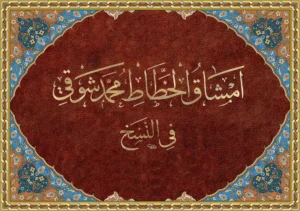 امشاق الخطاط محمد شوقي
في النسخ